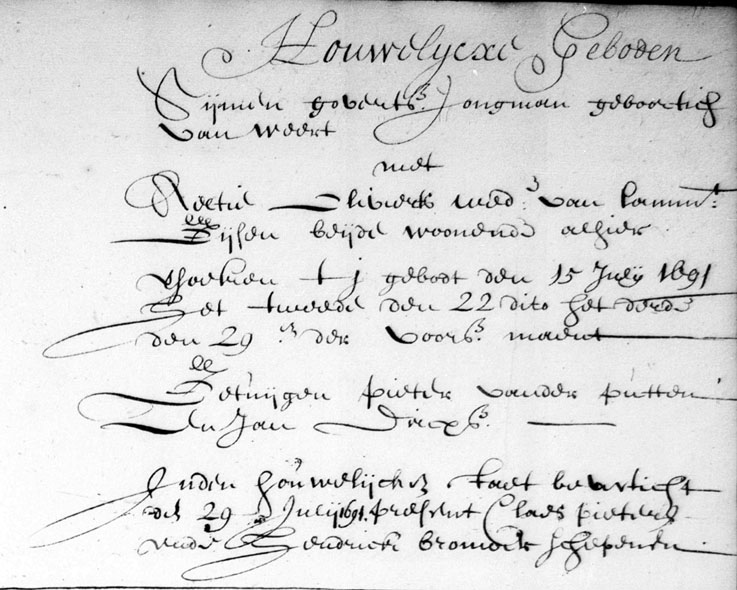 Houwelijcxe Geboden
Sijmen Goverts Jongman geboortich
van weert
met
Neetie Olivierts wed: van Lamm:t
Tijsen beijde woonende alhier
t j gebodt den 15 July 1691
Het tweede den 22 dito het derde
den 29 der voors: maent
Getuijgen pieter vander putten
En Jan Dircxs:
Inden houwelijcken staet bevesticht
den 29 July 1691 present Claes pieters
ende Hendrick schepenen